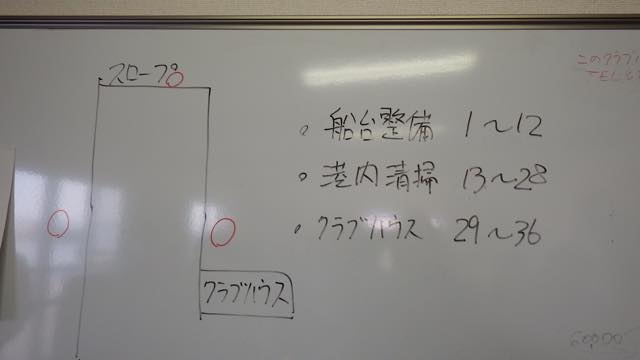 スロープ
・船台整備 1〜12
・港内清掃 13〜28
・クラブハウス 29〜36
クラブハウス